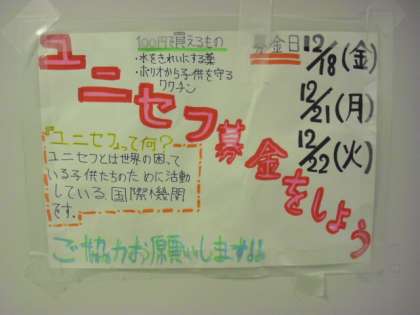 ユニセフ募金をしょう
100円で買えるもの
・水をきれいにする薬
・ポリオから子供を守る
ワクチン
募金日
12/18(金)
12/21(月)
12/22(火)
『ユニセフ』って何?
ユニセフとは世界の困って
いる子供たちのために活動
している、国際機関
です。
ご協力お願いします!!